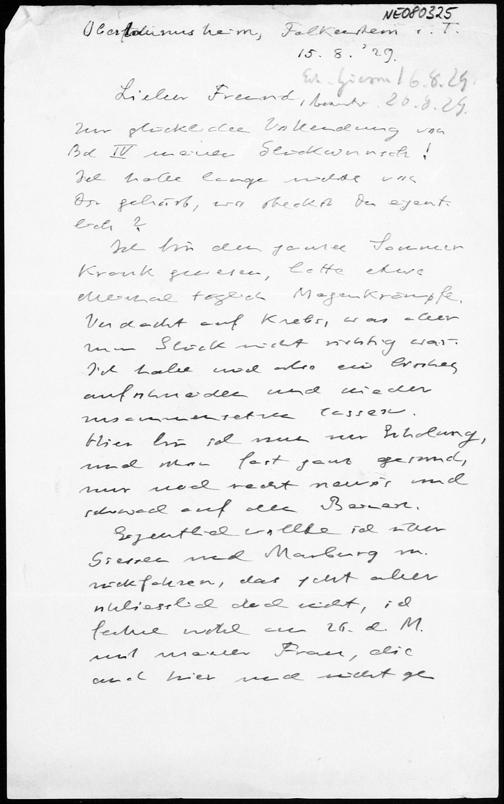 NE080325
Obertaunusheim, Falkenstein i. T.
15. 8. '29.
16.8.29.
20.8.29.
Lieber Freund,
zur glücklichen Vollendung von
Bd IV meinen Glückwunsch!
Ich habe lange nichts von
Dir gehört, wo steckst Du eigent-
lich?
Ich bin den ganzen Sommer
krank gewesen, hatte etwa
täglich Magenkrämpfe.
Verdacht auf Krebs, was aber
zum Glück nicht richtig war.
Ich habe mich also ein bischen
aufschneiden und wieder
zusammensetzen lassen.
Hier bin ich nun zur Erholung,
und schon fast ganz gesund,
nur noch recht nervös und
schwach auf den Beinen.
Eigentlich wollte ich über
Giessen und Marburg zu-
rückfahren, das geht aber
schliesslich doch nicht, ich
fahre wohl am 26. d. M.
mit meiner Frau, die
auch hier und nicht ge